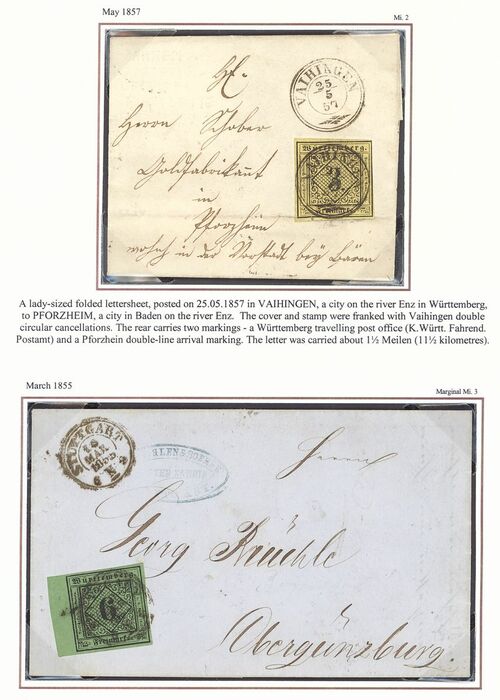 May 1857
Mi. 2
VAIHINGEN
25
5
57
Herrn Schober
Goldfabrikant
in
Pforzheim
wohnh in der Vorstadt bey Bären
Württemberg.
VAIHINGEN
3
Freimarke
A lady-sized folded lettersheet, posted on 25.05.1857 in VAIHINGEN, a city on the river Enz in Württemberg,
to PFORZHEIM, a city in Baden on the river Enz. The cover and stamp were franked with Vaihingen double
circular cancellations. The rear carries two markings - a Württemberg travelling post office (K.Württ. Fahrend.
Postamt) and a Pforzhein double-line arrival marking. The letter was carried about 1½ Meilen (11½ kilometres).
March 1855
Marginal Mi. 3
STUTTGART
18
MAR
1855
Herrn
Georg
Obergünzburg.
Württemberg.
6
Freimarke